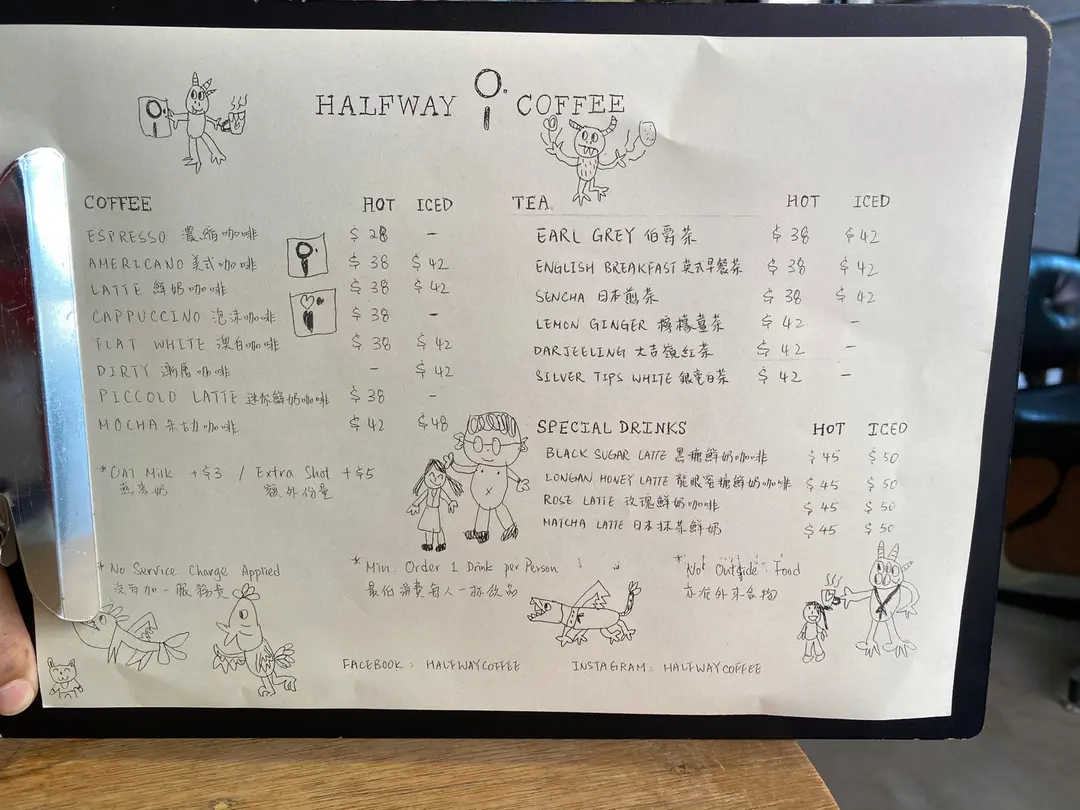 HALFWAY COFFEE
COFFEE HOT ICED
ESPRESSO 濃縮咖啡 $ 28 -
AMERICANO 美式咖啡 $ 38 $ 42
LATTE 鮮奶咖啡 $ 38 $ 42
CAPPUCCINO 泡沫咖啡 $ 38 -
FLAT WHITE 澳白咖啡 $ 38 $ 42
DIRTY 漸層咖啡 - $ 42
PICCOLO LATTE 迷你鮮奶咖啡 $ 38 -
MOCHA 朱古力咖啡 $ 42 $ 48
* Oat Milk +$3 / Extra Shot +$5
燕麥奶 額外份量
TEA HOT ICED
EARL GREY 伯爵茶 $ 38 $ 42
ENGLISH BREAKFAST 英式早餐茶 $ 38 $ 42
SENCHA 日本煎茶 $ 38 $ 42
LEMON GINGER 檸檬薑茶 $ 42 -
DARJEELING 大吉嶺紅茶 $ 42 -
SILVER TIPS WHITE 銀毫白茶 $ 42 -
SPECIAL DRINKS HOT ICED
BLACK SUGAR LATTE 黑糖鮮奶咖啡 $ 45 $ 50
LONGAN HONEY LATTE 龍眼蜜糖鮮奶咖啡 $ 45 $ 50
ROSE LATTE 玫瑰鮮奶咖啡 $ 45 $ 50
MATCHA LATTE 日本抹茶鮮奶 $ 45 $ 50
* No Service Charge Applied
沒有加一服務費
* Min. Order 1 Drink per Person
最低消費每人一杯飲品
* Not Outside Food
外來食物
FACEBOOK : HALFWAYCOFFEE INSTAGRAM : HALFWAYCOFFEE